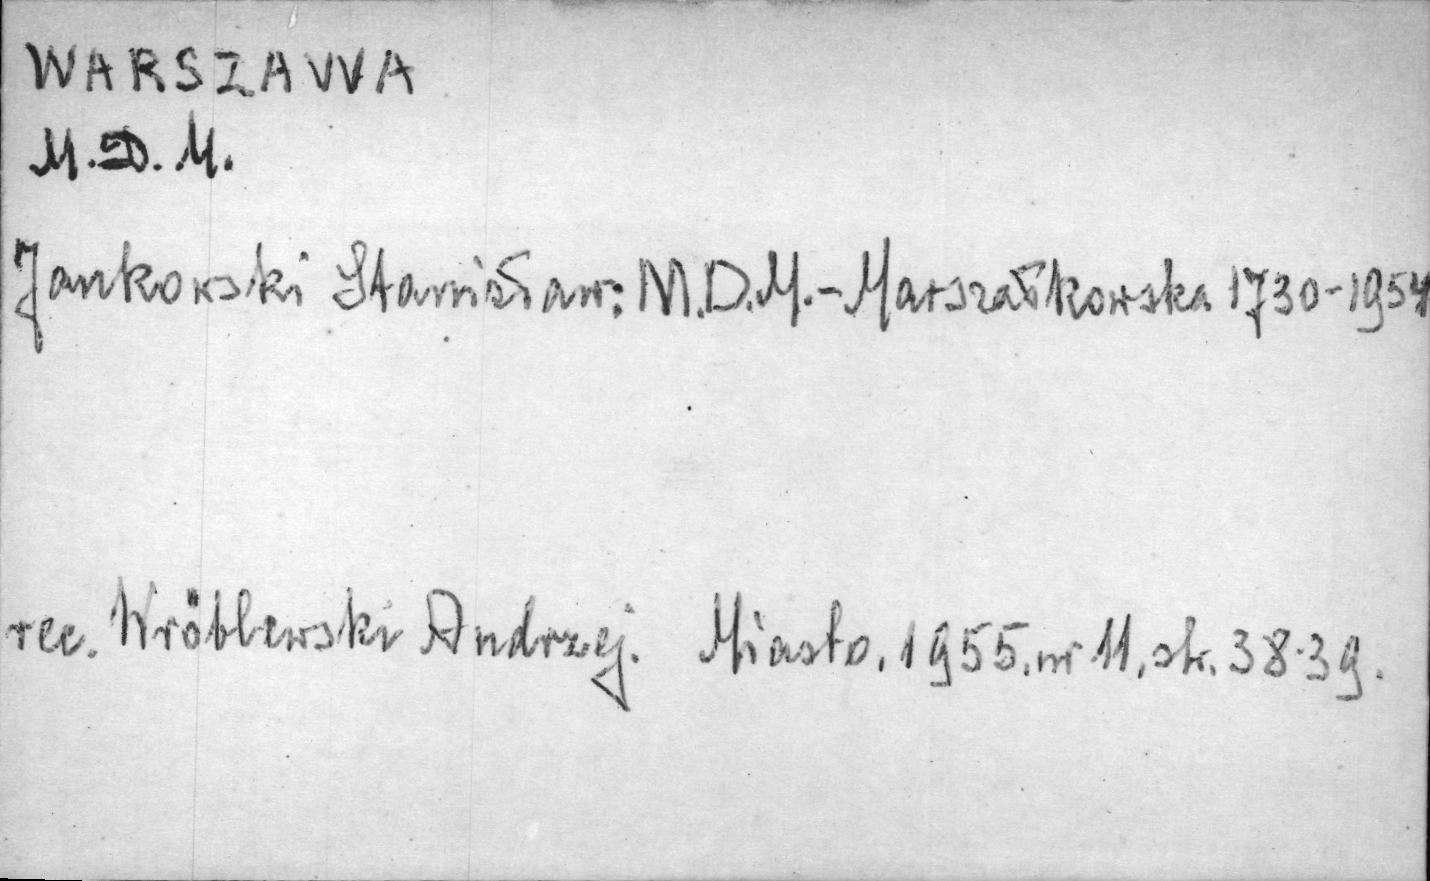 WARSZAWA
M.D.M.
Jankowski Stanisław: M.D.M.-Marszałkowska 1730-1954
rec. Wróblewski Andrzej. Miasto, 1955, nr 11, str. 38-39.